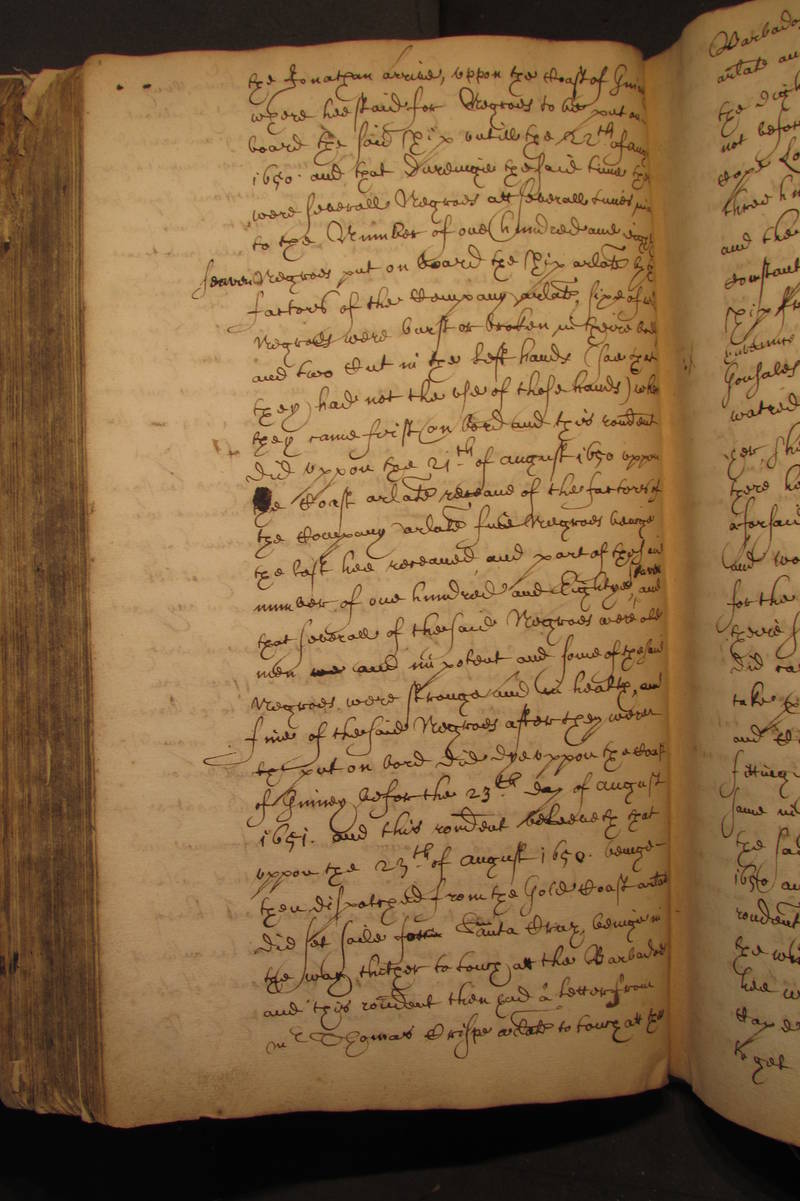 the Jonathan arrive, uppon the Coast of Guin
where hee staid for Negroes to be put on
board the said shipp untill the 22th of aug
1650. and that dureinge the said time the
were severall Negroes att severall times
to the Number of one hundred and eight
seaven Negroes put on board the shipp arlate by the
factors of the Company arlate, sixe of
Negroes were burst or broken in theire
and two Cut in the left hands (soe that
they had not the use of those hands) when
they came first on bord and this rendent
did uppon the 21th of august 1650 uppon
the Coast arlate receave of the factors of
the Company arlate five Negroes beinge
the last hee receaved, and part of the said
number of one hundred and Eightye seaven and
that severall of the said Negroes were old
men and impotent and some of the said
Negroes were stronge and in health, and
five of the said Negroes after they were
put on bord did dye uppon the Coast
of Guiney before the 23th day of august
1651. and this rendent beleeveth that
uppon the 23th of august 1650. beinge
then dispatched from the Gold Coast arlate
did set saile Santa Cruz, beinge in
the way thither to touch att the Barbados
and this rendent then had a letter from
mr Thomas Crispe arlate to touch att the
Barbados
arlate an
the
not befor
three h
and the
Constant
shipp
Gonsales
watred
there he
aforsaid
and wo
for the
theire s
did ca
take
and
fitting
same
the sa
1650 an
rendent
the wi
hee w
to get